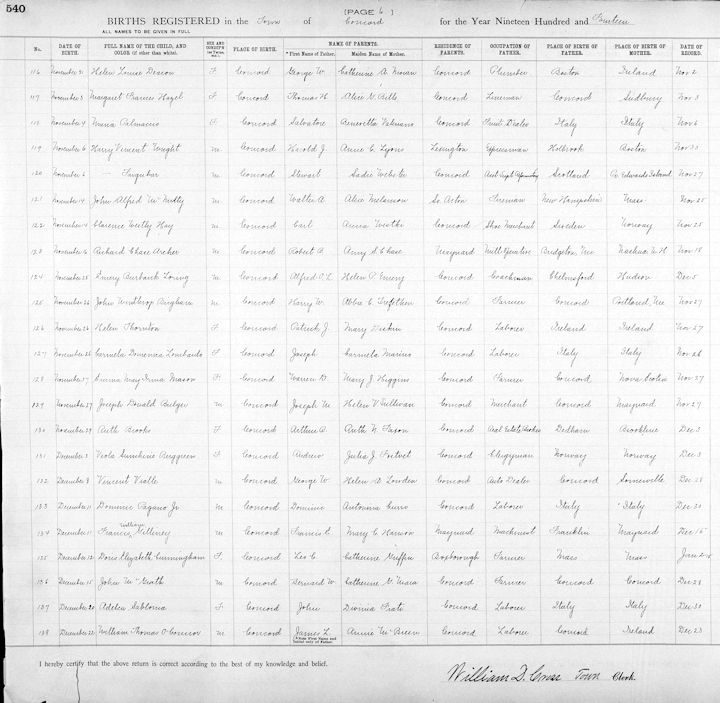 540
[PAGE 6]
BIRTHS REGISTERED in the Town of Concord for the Year Nineteen Hundred and Fourteen
ALL NAMES TO BE GIVEN IN FULL
No. DATE OF BIRTH. FULL NAME OF THE CHILD, AND COLOR (if other than white). SEX AND CONDITION (as Twins, etc.) PLACE OF BIRTH. NAME OF PARENTS. *First Name of Father. Maiden Name of Mother. RESIDENCE OF PARENTS. OCCUPATION OF FATHER. PLACE OF BIRTH OF FATHER. PLACE OF BIRTH OF MOTHER. DATE OF RECORD.
116 November Helen Louise Deacon F Concord George W. Catherine A. Concord Plumber Boston Ireland Nov 2
117 November 3 Margaret Frances Hazel F Concord Thomas H. Alice V. Bills Concord Lineman Concord Sudbury Nov 3
118 November 4 Maria Palmacci F Concord Salvatore Concord Fruit Dealer Italy Italy Nov 6
119 November 6 Harry Vincent Wright M Concord Harold J. Annie C. Lyons Lexington Expressman Holbrook Boston Nov 30
120 November 6 — Concord Stewart Sadie Webster Concord Scotland Pr. Edwards Island Nov 27
121 November 14 John Alfred McNulty M Concord Walter A. Alice Melanson So. Acton Fireman New Hampshire Mass Nov 25
122 November 14 Clarence Westly Hay M Concord Carl Anna Concord Shoe Merchant Sweden Norway Nov 25
123 November 16 Richard Chase Archer M Concord Robert B. Amy S. Chase Maynard Bridgton, Me Nashua N.H Nov 18
124 November 25 Emery Burbank Loring M Concord Alfred P. L. Helen P. Emery Concord Coachman Chelmsford Hudson Dec 5
125 November 26 John Winthrop Brigham M Concord Harry W. Abbie C. Trefethen Concord Farmer Concord Portland, Me Nov 27
126 November 26 Helen Thornton F Concord Patrick J. Mary Concord Laborer Ireland Ireland Nov 27
127 November 26 Carmela Domenica Lombardo F Concord Joseph Carmela Marino Concord Laborer Italy Italy Nov 28
128 November 27 Emma May Irma Mason F Concord Warren B. Mary J. Higgins Concord Farmer Concord Nova Scotia Nov 27
129 November 27 Joseph Donald Bulger M Concord Joseph M. Helen V. Sullivan Concord Merchant Concord Maynard Nov 27
130 November 29 Ruth Brooks F Concord Arthur P. Ruth N. Faxon Concord Real Estate Broker Dedham Brookline Dec 3
131 December 3 Viola Sunshine Berggreen F Concord Andrew Julia J. Concord Clergyman Norway Norway Dec 3
132 December 8 Vincent Vialle M Concord George W. Helen S. Lowden Concord Auto Dealer Concord Somerville Dec 28
133 December 11 Dominic Pagano Jr M Concord Dominic Antonina Concord Laborer Italy Italy Dec 30
134 December 11 Francis William M Concord Francis C. Mary C. Maynard Machinist Franklin Maynard Dec 15
135 December 12 Doris Elizabeth Cunningham F Concord Leo C. Catherine Griffin Boxborough Farmer Mass Mass Jan 2-15
136 December 15 John McGrath M Concord Bernard W. Catherine V. Mara Concord Farmer Concord Concord Dec 28
137 December 20 Adelea Sablonia F Concord John Concord Laborer Italy Italy Dec 30
138 December 22 William Thomas O'Connor M Concord James L. Annie McBreen Concord Laborer Concord Ireland Dec 23
I hereby certify that the above return is correct according to the best of my knowledge and belief.
William D. Cross Town Clerk.